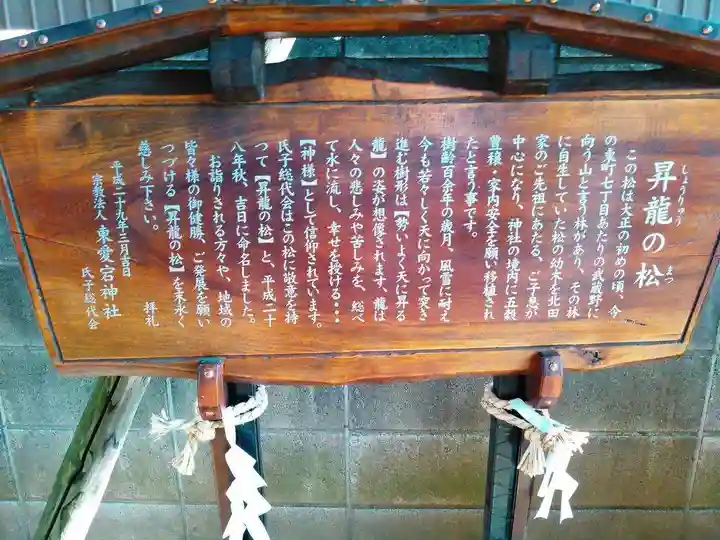 昇龍の松
しょうりゅう
まつ
この松は大正の初めの頃、今
の東町七丁目あたりの武蔵野に
向う山と言う林があり、その林
に自生していた松の幼木を北田
家のご先祖にあたる、ご子息が
中心になり、神社の境内に五穀
豊穣・家内安全を願い移植され
たと言う事です。
樹齢百余年の歳月、風雪に耐え
今も若々しく天に向かって突き
進む樹形は【勢いよく天に昇る
龍】の姿が想像されます、龍は
人々の悲しみや苦しみを、総べ
て水に流し、幸せを授ける・・・
【神様】として信仰されています。
氏子総代会はこの松に敬意を持
つて【昇龍の松】と、平成二十
八年秋、吉日に命名しました。
お詣りされる方々や、地域の
皆々様の御健勝、ご発展を願い
つづける【昇龍の松】を末永く
慈しみ下さい。
拝礼
平成二十九年三月吉日
宗教法人 東愛宕神社
氏子総代会